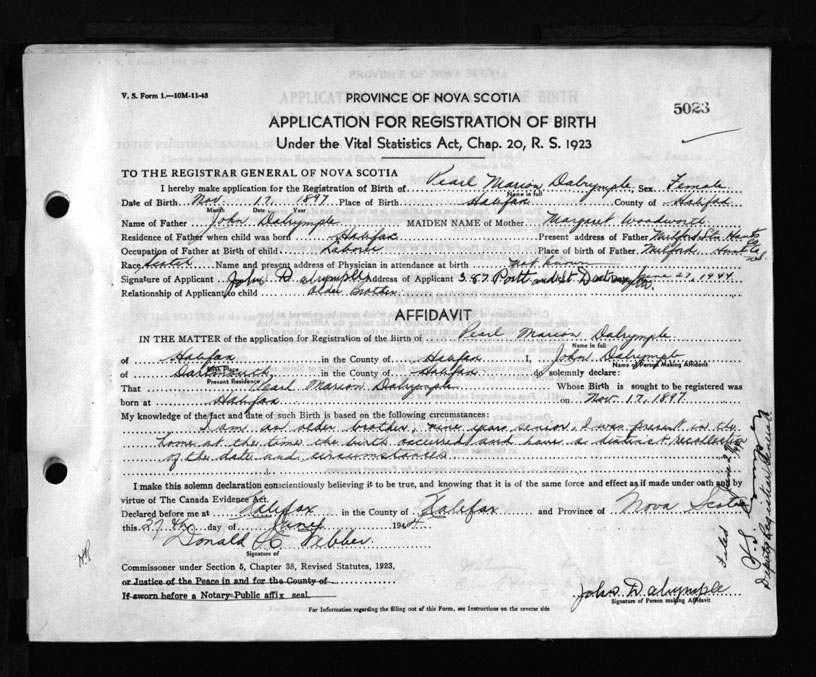 V. S. Form 1.—10M-11-43
5023
PROVINCE OF NOVA SCOTIA
APPLICATION FOR REGISTRATION OF BIRTH
Under the Vital Statistics Act, Chap. 20, R. S. 1923
TO THE REGISTRAR GENERAL OF NOVA SCOTIA
I hereby make application for the Registration of Birth of Pearl Marion Dalrymple, Sex Female
Name in full
Date of Birth Nov. 17 1897 Place of Birth Halifax County of Halifax
Month Date Year
Name of Father John Dalrymple MAIDEN NAME of Mother Margaret Woodworth
Residence of Father when child was born Halifax Present address of Father Milford Sta. Hants
Occupation of Father at Birth of child Laborer Place of birth of Father Milford Hants Co N.S.
Race Scotch Name and present address of Physician in attendance at birth not known
Signature of Applicant John Dalrymple Address of Applicant 287 Portland St Dartmouth June 27, 1944
Relationship of Applicant to child Older Brother
AFFIDAVIT
IN THE MATTER of the application for Registration of the Birth of Pearl Marion Dalrymple
Name in full
of Halifax in the County of Halifax I, John Dalrymple
Birth Place Name of Person Making Affidavit
of Dartmouth in the County of Halifax do solemnly declare:
Present Residence
That Pearl Marion Dalrymple Whose Birth is sought to be registered was
born at Halifax on Nov. 17, 1897.
My knowledge of the fact and date of such Birth is based on the following circumstances:
I am an older brother, nine years senior, I was present in the
home at the time the birth occurred and have a distinct recollection
of the date and circumstances
I make this solemn declaration conscientiously believing it to be true, and knowing that it is of the same force and effect as if made under oath and by
virtue of The Canada Evidence Act.
Declared before me at Halifax in the County of Halifax and Province of Nova Scotia
this 27th day of June 1944
Donald Webber
Signature of
Commissoner under Section 5, Chapter 38, Revised Statutes, 1923,
or Justice of the Peace in and for the County of
If sworn before a Notary Public affix seal.
John Dalrymple
Signature of Person making Affidavit
For Information regarding the filling out of this Form, see Instructions on the reverse side
Filed June
Deputy Registrar General